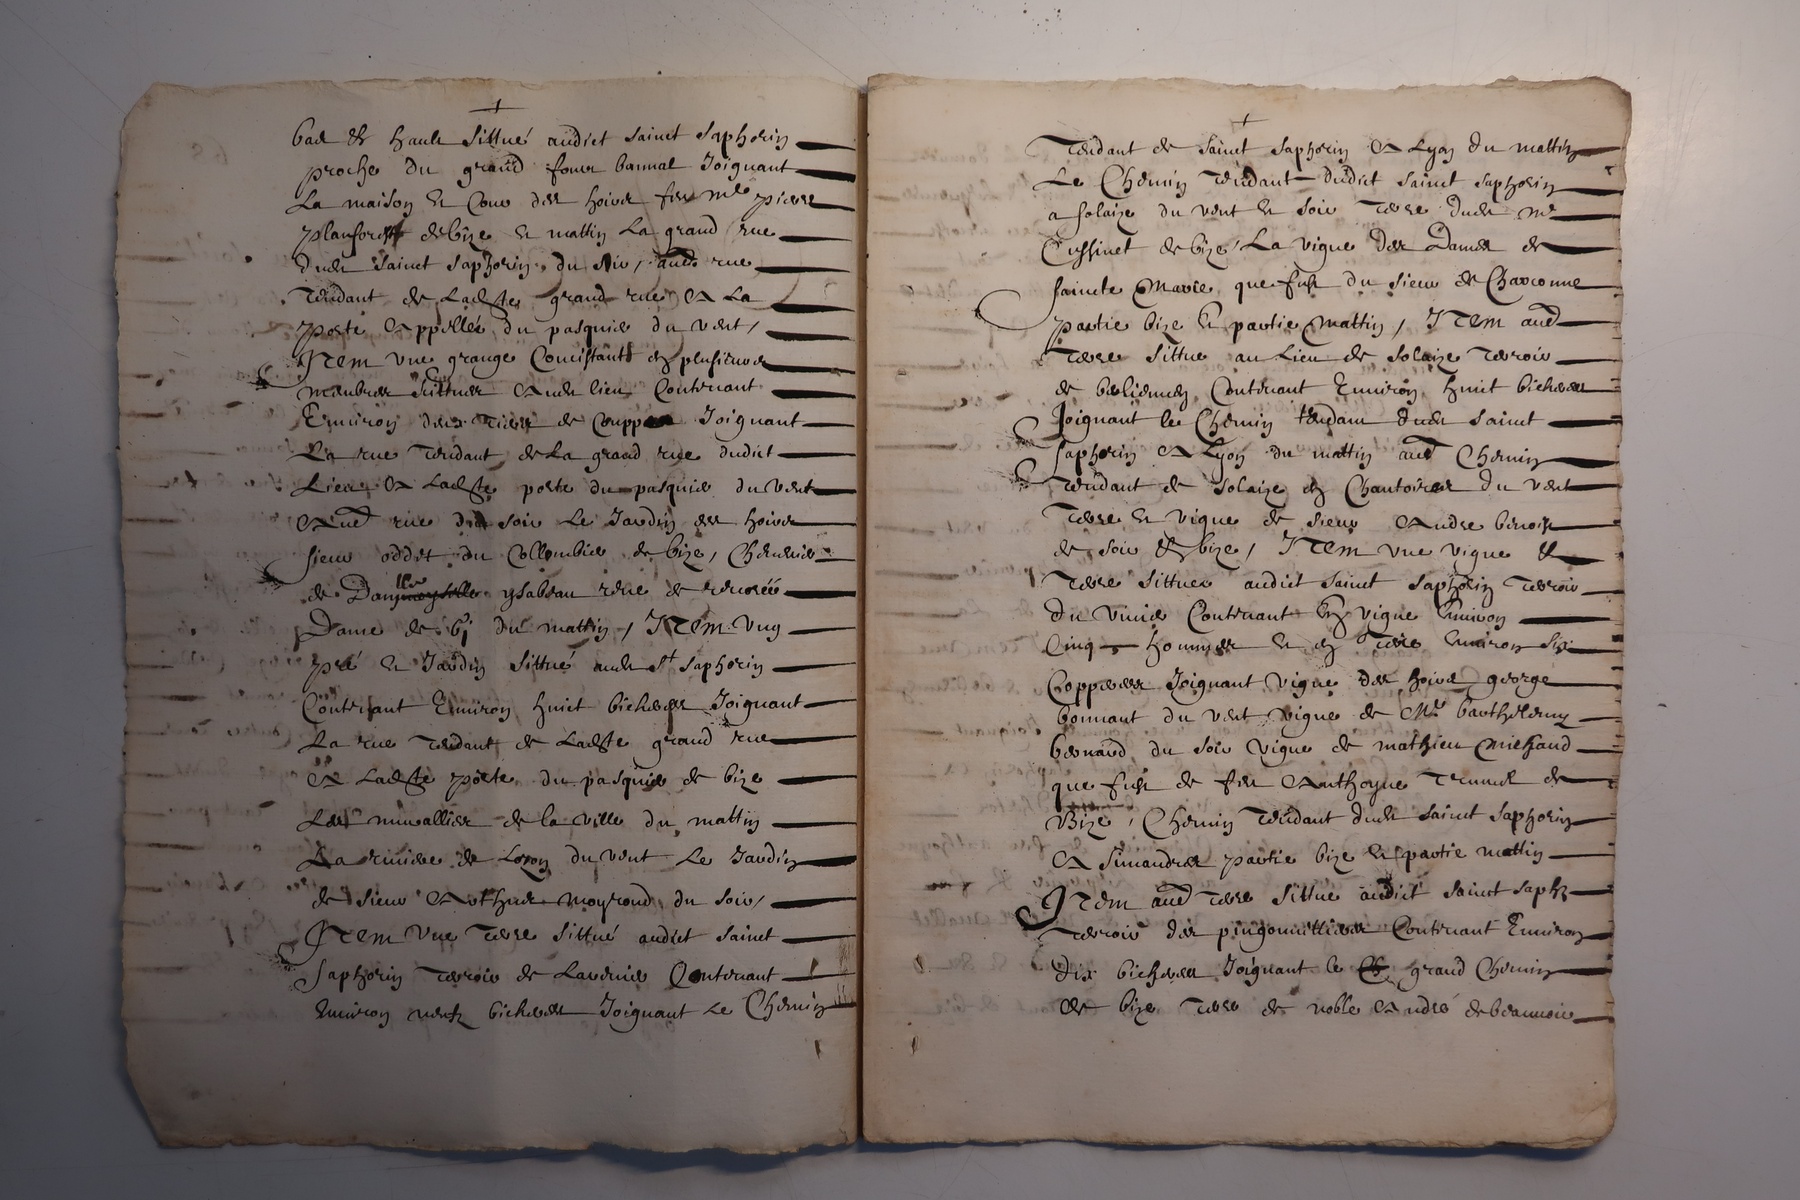 bas et hault sittué audict sainct saphorin
proche du grand four bannal Joignant
La maison et Cour des hoirs feu Mre pierre
de bize et mattin La grand rue
dudt sainct saphorin du soir, audt rue
Tendant de Ladte grand rue A La
porte Appellée du pasquier du vent,
ITEM vne grange Concistant en plusieurs
membres sittuee Audt lieu Contenant
Enuiron deux Tiers de Joignant
La rue Tendant de La grand rue dudict
Lieu A Ladte porte du pasquier du vent
Aud rue du soir Le Jardin des hoirs
sieur oddet du Collombier de bize, Chenevier
de Damlle ysabeau
Dame de du mattin, ITEM vng
pré et Jardin sittué audt St saphorin
Contenant Enuiron huict bicheres Joignant
La rue Tendant de Ladte grand rue
A Ladte porte du pasquier de bize
Les murallies de la ville du mattin
La riuiere de Lozon du vent Le Jardin
de sieur Arthus moyroud du soir,
ITEM vne Terre sittué audict sainct
saphorin Terroir de Lavernier Contenant
enuiron neuf bicheres Joignant Le Chemin
Tendant de sainct saphorin A Lyon du mattin
Le Chemin Tendant dudict sainct saphorin
a solaize du vent et soir Terre dudt Mr
Cussinet de bize, La vigne des Dames de
saincte Marie que fust du sieur de Charconne
partie bize et partie mattin, ITEM aud
Terre sittue au Lieu de solaize Terroir
de Contenant Enuiron huict bicheres
Joignant le Chemin tendant dudt sainct
saphorin A Lyon du mattin aud Chemin
Tendant de solaize en Chantoires du vent
Terre et vigne de sieur Andre benoist
de soir et bize, ITEM vne vigne et
Terre sittuee audict sainct saphorin Terroir
du viuier Contenant En vigne Enuiron
Cinq hommees et en Terre Enuiron six
Copperes Joignant vigne des hoirs george
bonnant du vent vigne de Mre barthelemy
bernard du soir vigne de mathieu michaud
que fust de feu Anthoyne de
Bize, Chemin Tendant dudt sainct saphorin
A simandres partie bize et partie mattin
ITEM aud Terre sittue audict sainct saphn
Terroir des Contenant Enuiron
dix bicheres Joignant le grand Chemin
de bize Terre de noble André de beauuoir